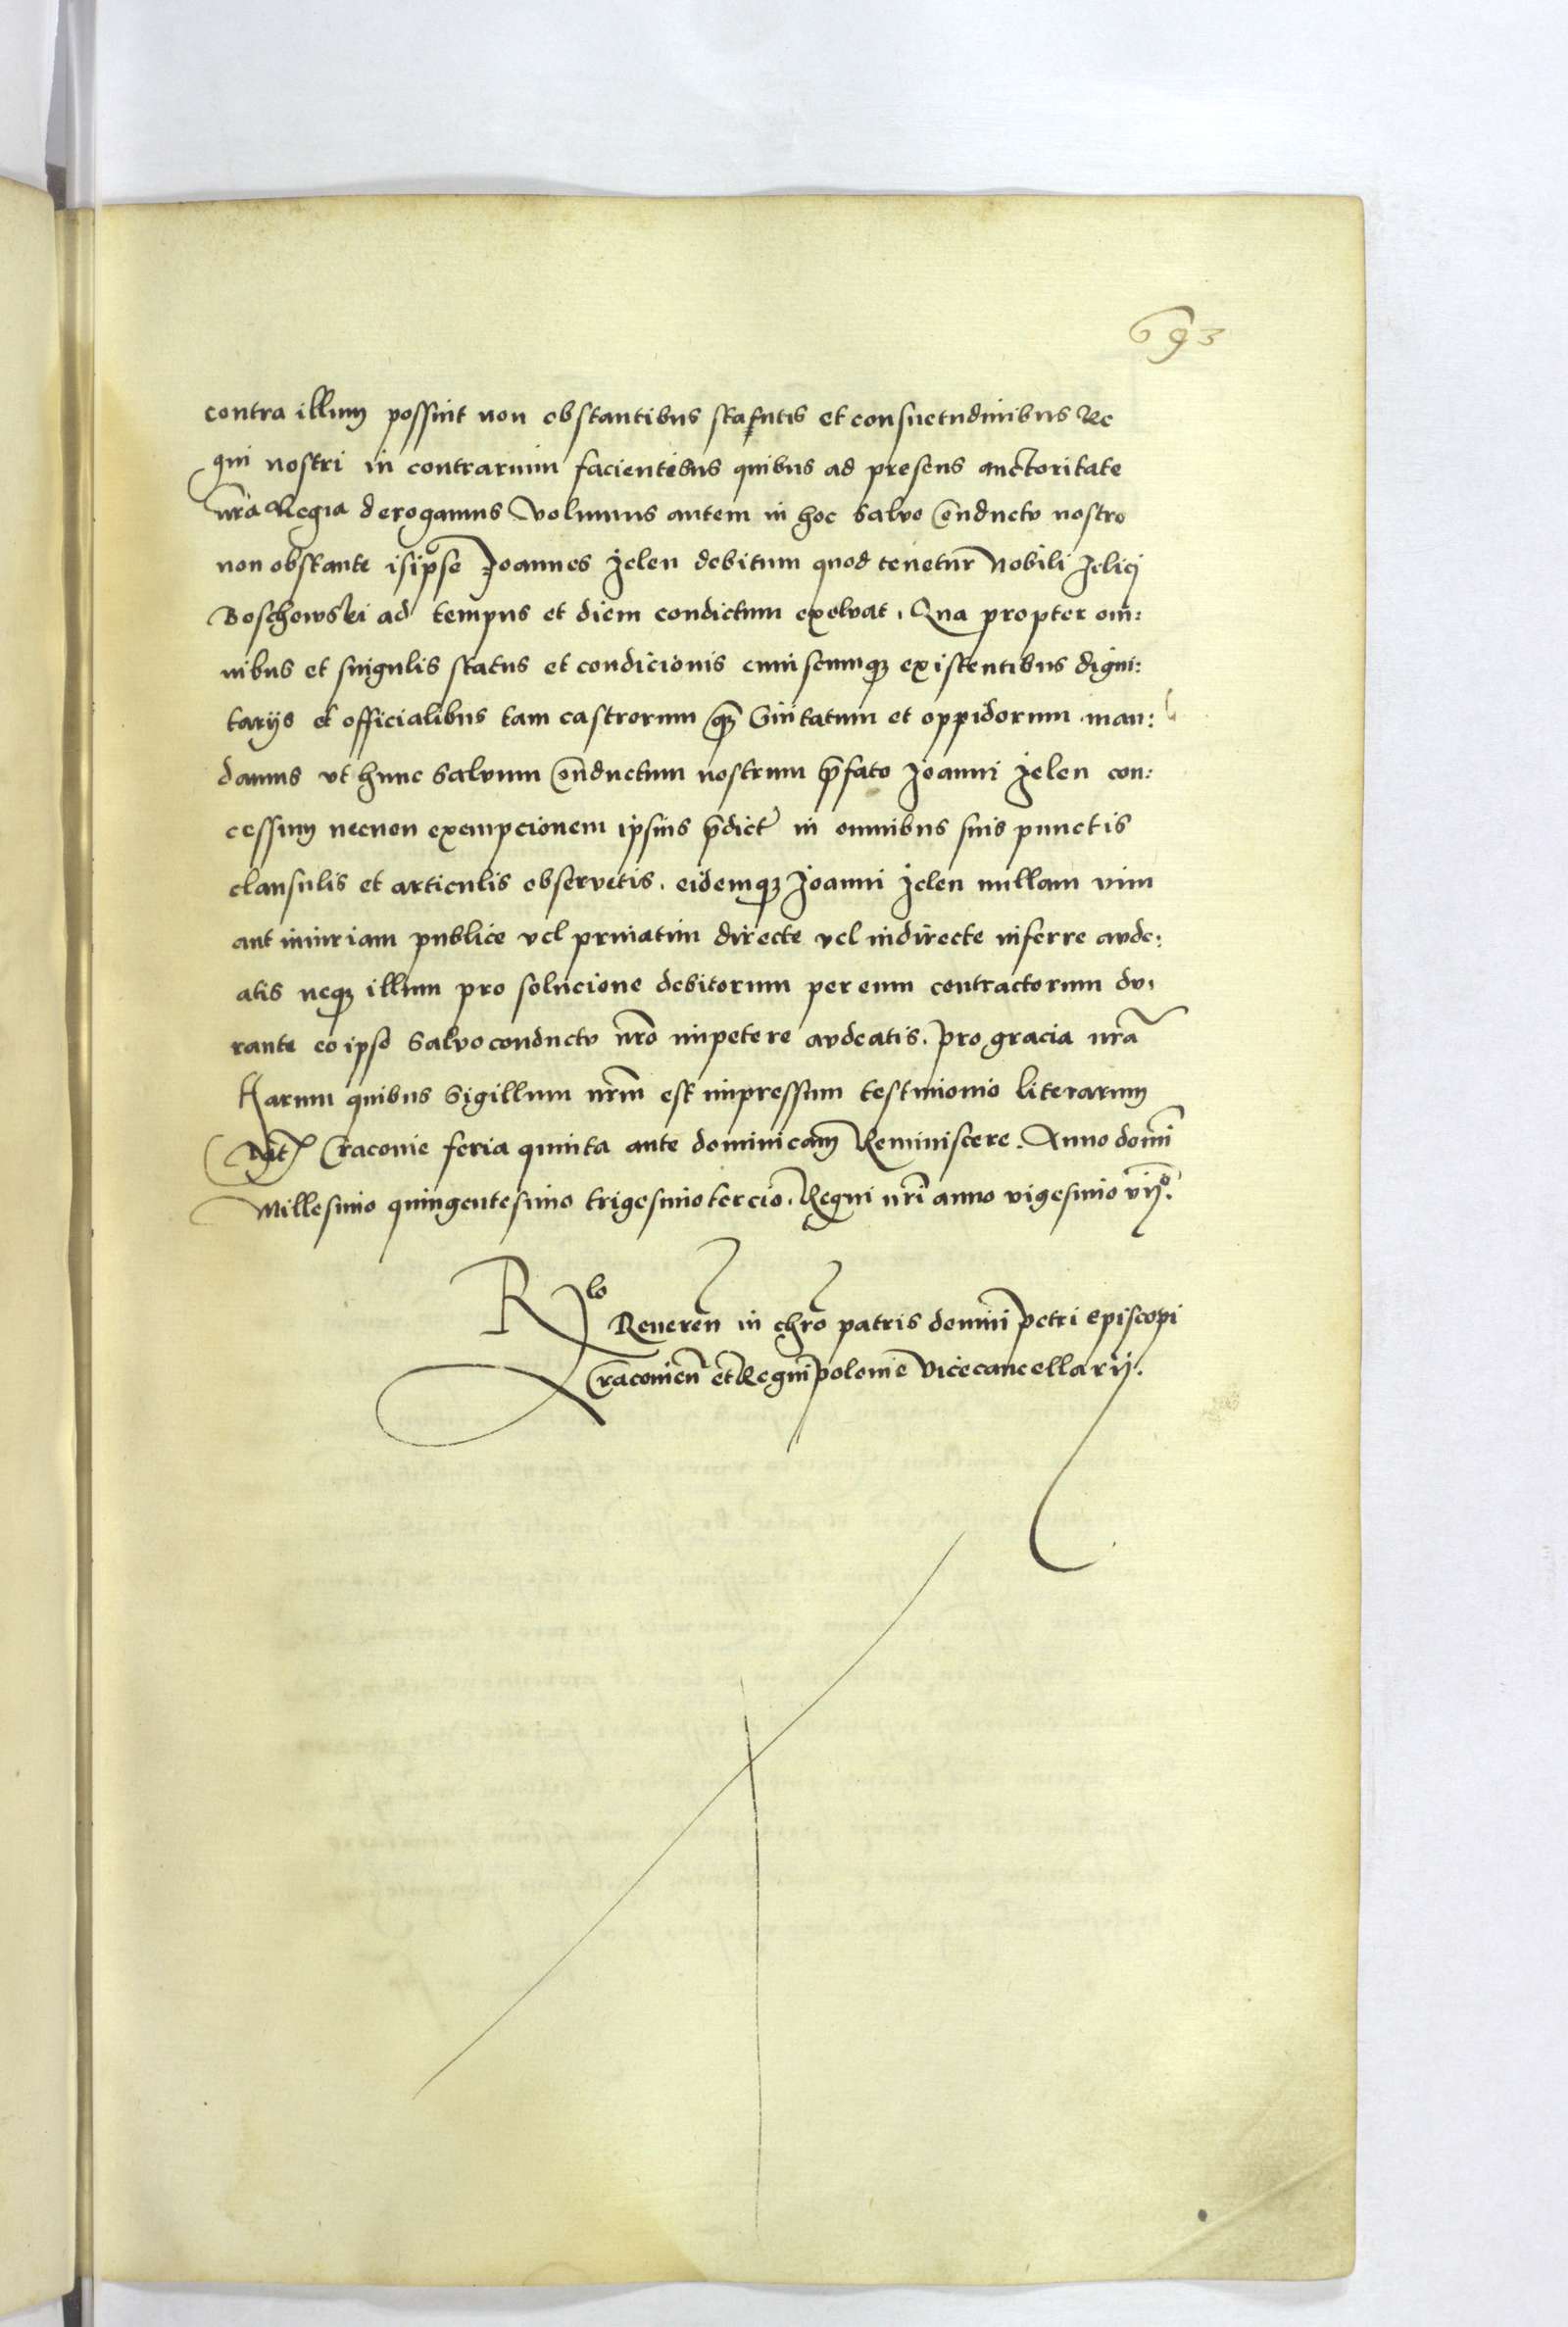 693
contra illum possint non obstantibus statutis et consuetudinibus Re
gni nostri in contrarium facientibus quibus ad presens auctoritate
nrã Regia derogamus Volumus autem in hoc salvo cõnductu nostro
non obstante is ipse Joannes Jelen debitum quod tenetur Nobili
Boschowski ad tempus et diem condictum exolvat. Qua propter om:
nibus et singulis status et condicionis cuiuscumqꝫ existentibus digni:
tarijs et officialibus tam castrorum qꝫ Civitatum et oppidorum man:
damus vt hunc salvum cõnductum nostrum p̃fato Joanni Jelen con:
cessum necnon exempcionem ipsius p̃dict in omnibus suis punctis
clausulis et articulis observetis. eidemqꝫ Joanni Jelen nullam vim
aut iniuriam publice vel privatim directe vel indirecte inferre aude:
atis neqꝫ illum pro solucione debitorum per eum contractorum du,
rante eo ipso salvoconductu nr̃o impetere audeatis. pro gracia nrã
Harum quibus Sigillum nrm̃ est impressum testimonio literarum
Dat Cracovie feria quinta ante dominicam Reminiscere. Anno domĩ
Millesimo quingentesimo trigesimo tercio. Regni nrĩ anno vigesimo vijº.
Rlo Reveren̄ in chrõ patris domini petri episcopi
Cracovien̄ et Regni polonie Vicecancellarij.